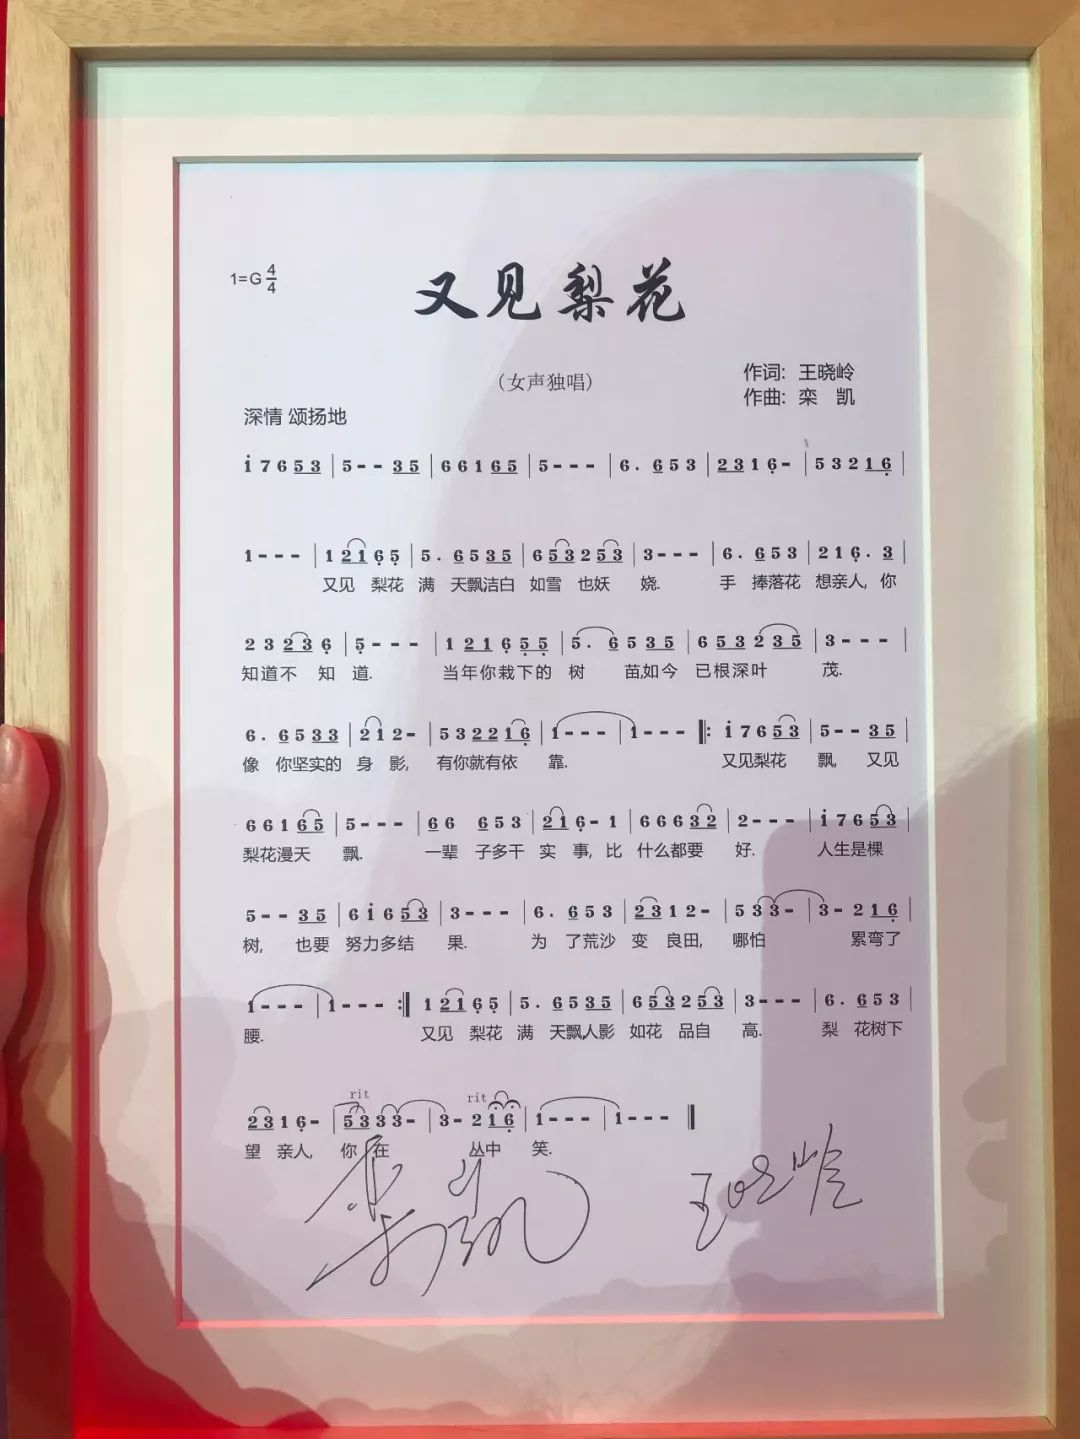 又见梨花
1=G 4/4
(女声独唱)
作词: 王晓岭
作曲: 栾 凯
深情 颂扬地
i 7 6 5 3 | 5 - - 3 5 | 6 6 1 6 5 | 5 - - - | 6 . 6 5 3 | 2 3 1 6 - | 5 3 2 1 6 |
1 - - - | 1 2 1 6 5 | 5 . 6 5 3 5 | 6 5 3 2 5 3 | 3 - - - | 6 . 6 5 3 | 2 1 6 . 3 |
又见 梨花 满 天飘洁白 如雪 也妖 娆. 手 捧落花 想亲人, 你
2 3 2 3 6 | 5 - - - | 1 2 1 6 5 5 | 5 . 6 5 3 5 | 6 5 3 2 3 5 | 3 - - - |
知道不 知 道. 当年你栽下的 树 苗,如今 已根深叶 茂.
6 . 6 5 3 3 | 2 1 2 - | 5 3 2 2 1 6 | 1 - - - | 1 - - - ‖: i 7 6 5 3 | 5 - - 3 5 |
像 你坚实的 身 影, 有你就有依 靠. 又见梨花 飘, 又见
6 6 1 6 5 | 5 - - - | 6 6 6 5 3 | 2 1 6 - 1 | 6 6 6 3 2 | 2 - - - | i 7 6 5 3 |
梨花漫天 飘. 一辈 子多干 实 事, 比 什么都要 好. 人生是棵
5 - - 3 5 | 6 i 6 5 3 | 3 - - - | 6 . 6 5 3 | 2 3 1 2 - | 5 3 3 - | 3 - 2 1 6 |
树, 也要 努力多结 果. 为 了荒沙 变 良田, 哪怕 累弯了
1 - - - | 1 - - - :‖ 1 2 1 6 5 | 5 . 6 5 3 5 | 6 5 3 2 5 3 | 3 - - - | 6 . 6 5 3 |
腰. 又见 梨花 满 天飘,人影 如花 品自 高. 梨 花树下
rit rit
2 3 1 6 - | 5 3 3 3 - | 3 - 2 1 6 | 1 - - - | 1 - - - ‖
望 亲人, 你 在 丛中 笑.
栾凯 王晓岭